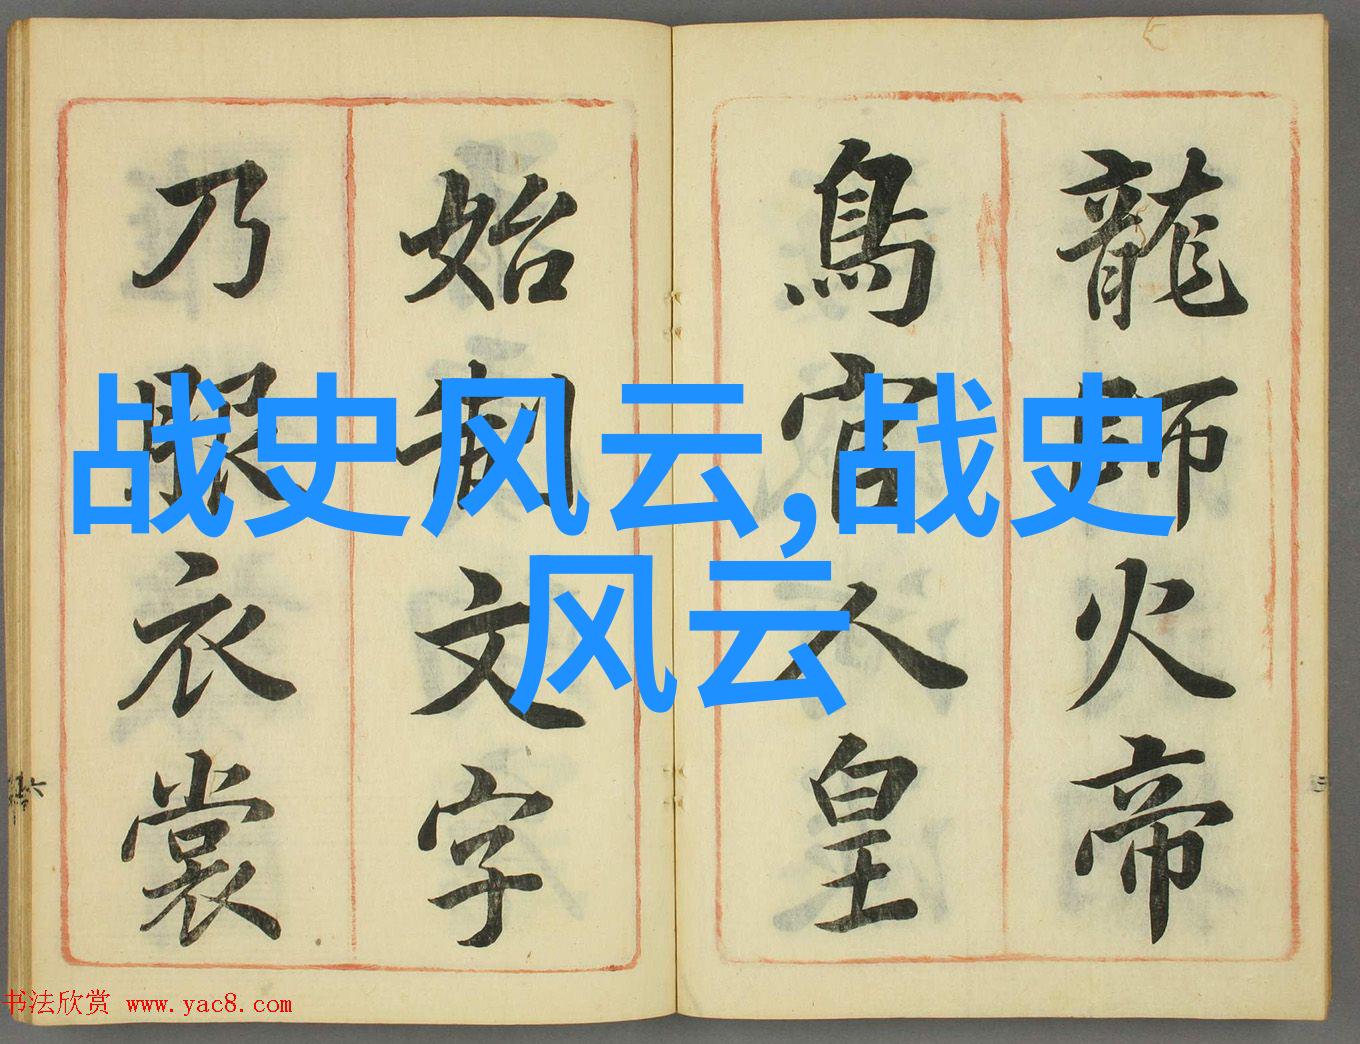 龍師火帝
鳥官人皇
始制文字
乃服衣裳
战史风云,战史
风云
书法欣赏 www.yac8.com